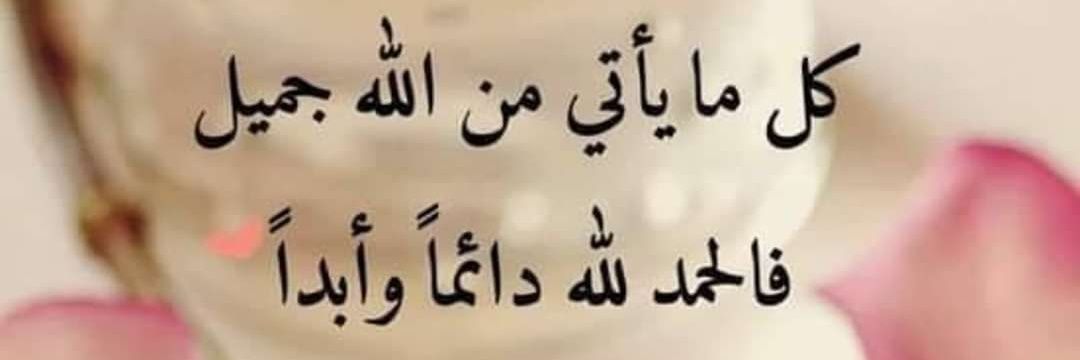 كل ما يأتي من الله جميل
فالحمد لله دائماً وأبداً